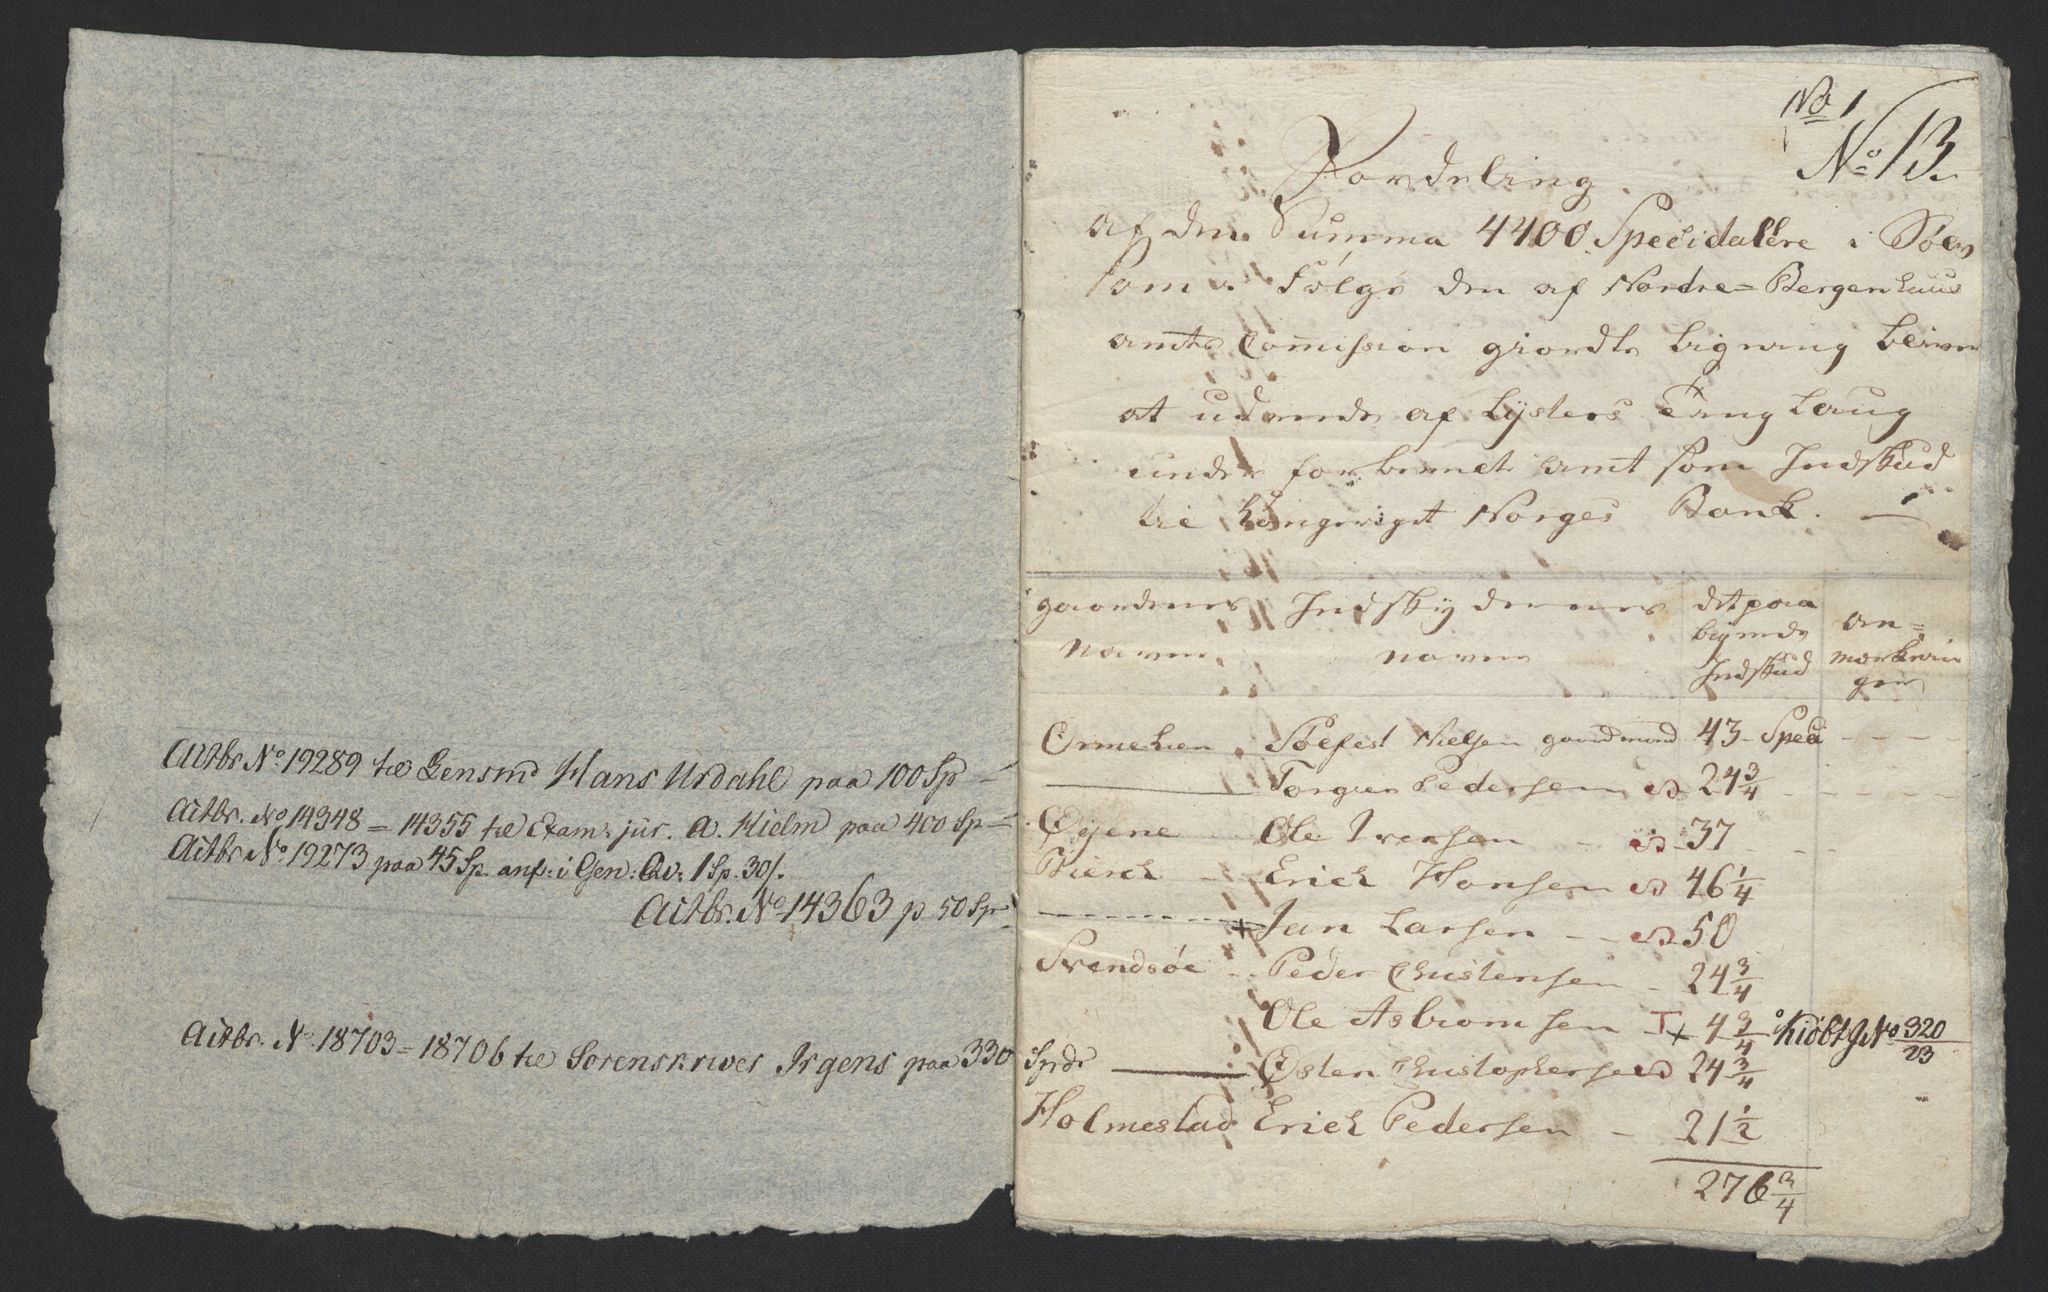 Actbr. No 19289 til Lensmd Hans Urdahl paa 100 Sp
Actbr. No 14348 = 14355 til Exam: jur. A. Hielm paa 400 Sp
Actbr No 19273 paa 45 Sp. anf: i Gen: Qv: 1 Sp. 30/.
Actbr. No 14363 p 50 Sp
Actbr. No 18703 = 18706 til Sorenskriver Irgens paa 330
No 1
No 13.
Fordeling
af den Summa 4400 Specidalere i Sølv
som i Følge den af Nordre=Bergenhuus
amts Comission giordte ligning
at udrede af Lysters Ting laug
under forbemelte amt som Indskud
til Kongeriget Norges Bank.
gaardenes Indskydernes det paa
lignede an=
navne navne Indskud mærknin
ger
Ormelien Søefest Nielsen gaardmand 43 - Speci
Torgier Pedersen 24 3/4
Øyene Ole Iversen 37
Bierck Erich Hansen 46 1/4
+ Jan Larsen 50
Svendsøe Peder Christensen 24 3/4
Ole Asbiornsen + 4 3/4 Kiöbt g No 320/23
Østen Christophersen 24 3/4
Holmestad Erich Pedersen 21 1/2
276 3/4